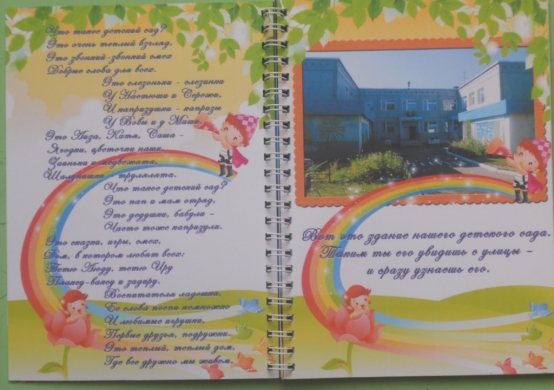 Что такое детский сад?
Это очень теплый взгляд,
Это звонкий-звонкий смех
Добрые слова для всех.
Это слезоньки - слезинки
У Настюши и Сережи,
И капризушки - капризы
У Вовы и у Маши
Это Лиза, Катя, Саша -
Ягодки, цветочки наши
Зайчики и медвежата,
Шалунишки -
Что такое детский сад?
Это пап и мам отряд,
Это дедушки, бабули -
Часто тоже
Это сказка, игры, смех,
Дом, в котором любят всех:
Тетю Люду, тетю Иру
и задиру.
Воспитателя ладошка,
Ее слова песни немножко
И любимые игрушки,
Первые друзья, подружки,
Это теплый, теплый дом,
Где все дружно мы живем.
Вот это здание нашего детского сада.
Таким ты его увидишь с улицы -
и сразу узнаешь его.